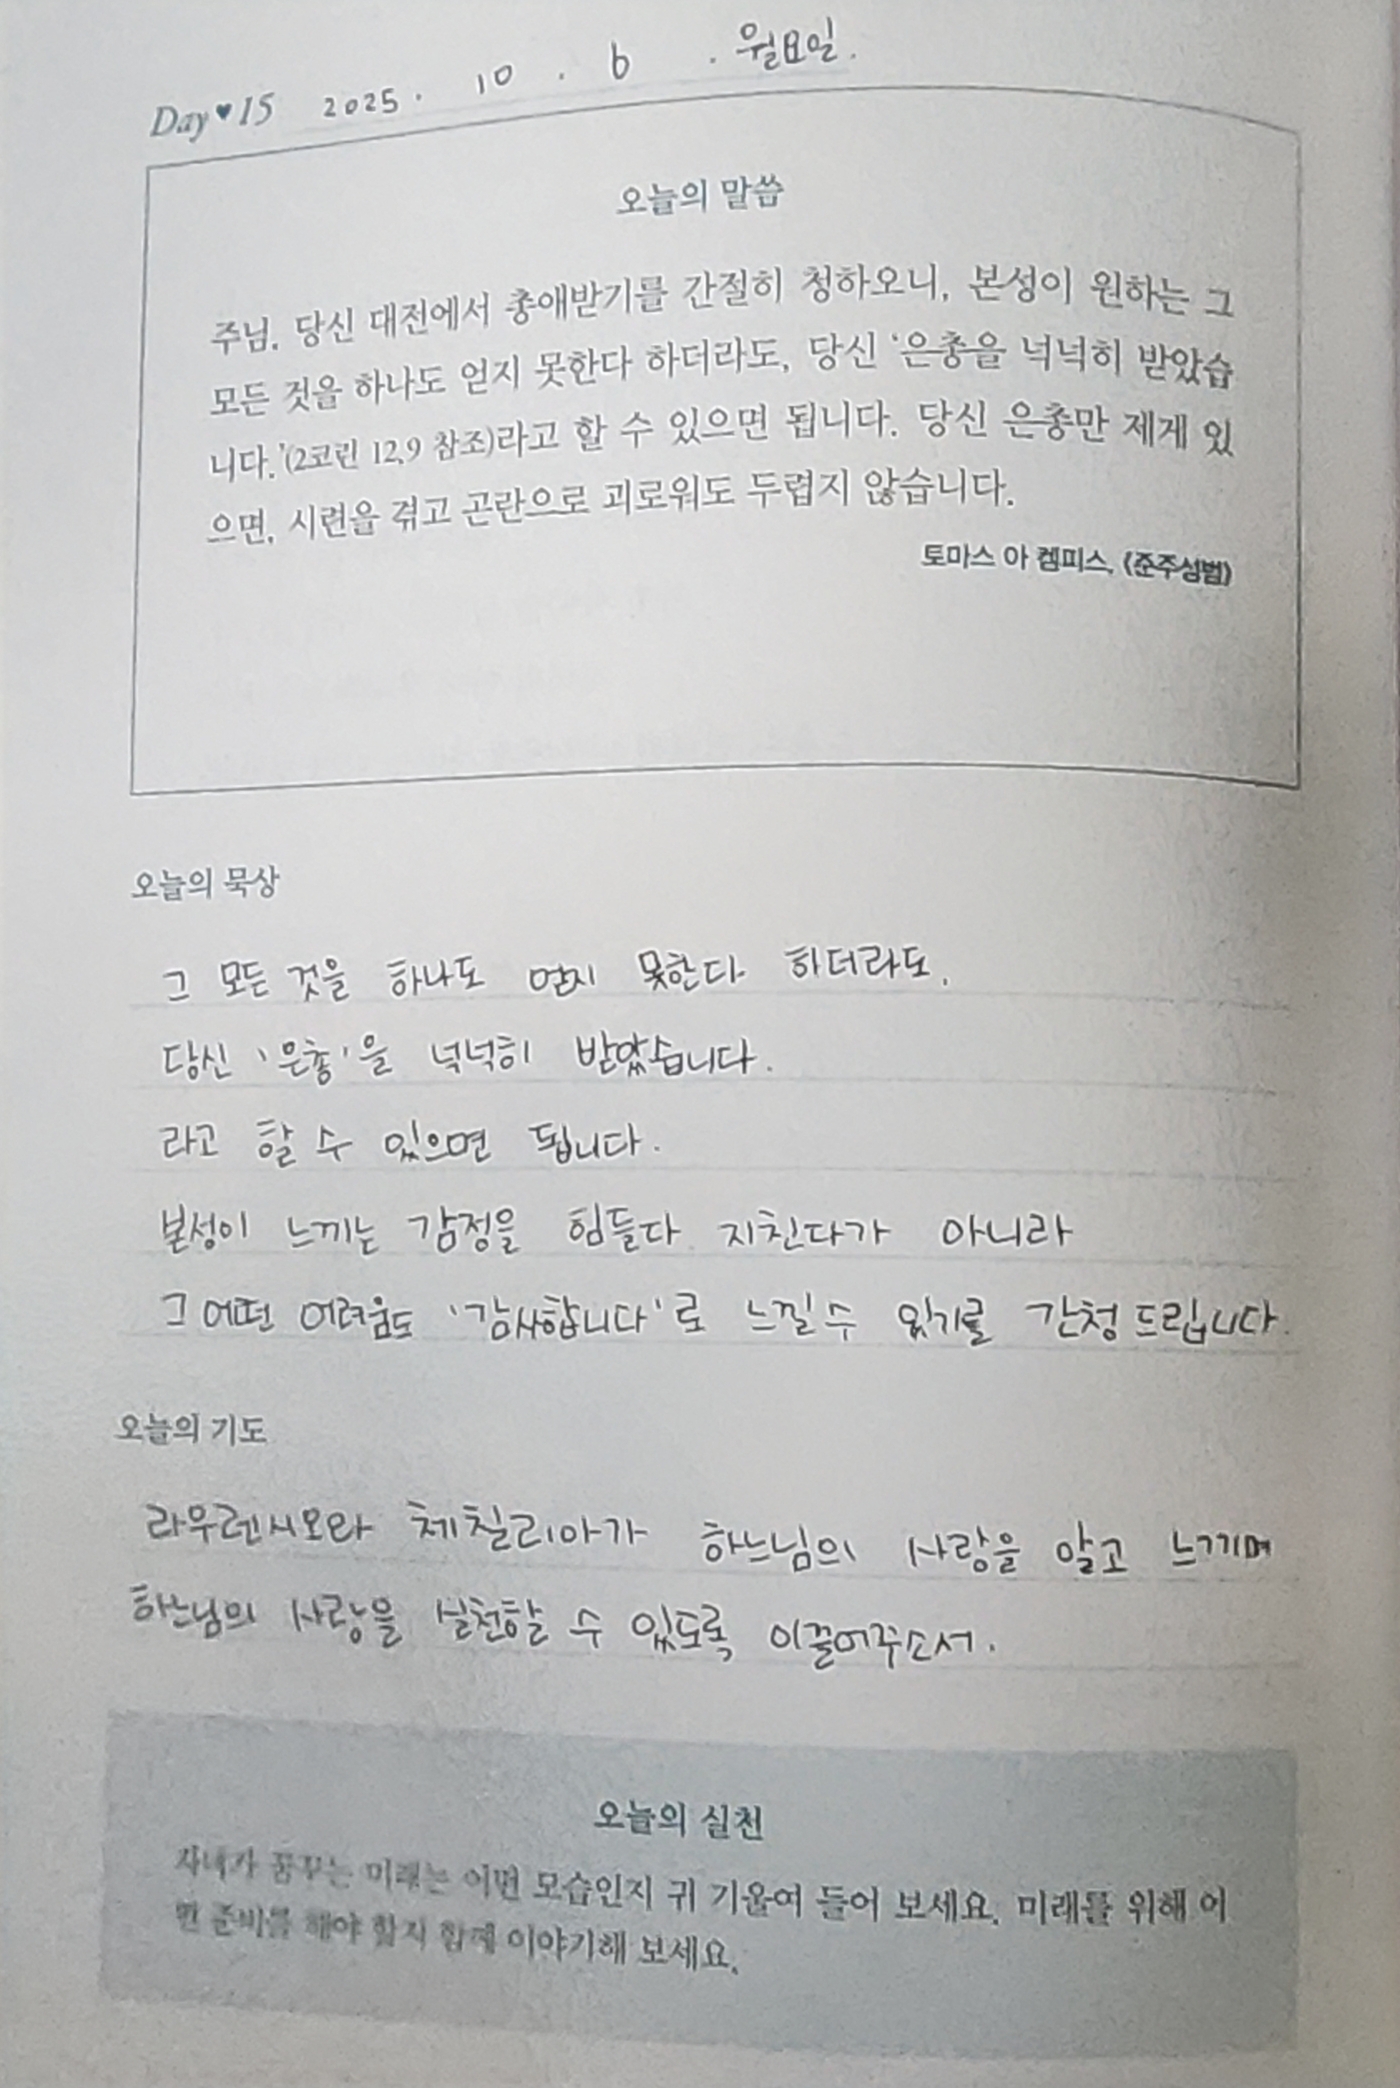 Day♥15 2025. 10. 6. 월요일.
오늘의 말씀
주님, 당신 대전에서 총애받기를 간절히 청하오니, 본성이 원하는 그
모든 것을 하나도 얻지 못한다 하더라도, 당신 ‘은총을 넉넉히 받았습
니다.’(2코린 12,9 참조)라고 할 수 있으면 됩니다. 당신 은총만 제게 있
으면, 시련을 겪고 곤란으로 괴로워도 두렵지 않습니다.
토마스 아 켐피스, 《준주성범》
오늘의 묵상
그 모든 것을 하나도 얻지 못한다 하더라도,
당신 '은총'을 넉넉히 받았습니다.
라고 할 수 있으면 됩니다.
본성이 느끼는 감정을 힘들다 지친다가 아니라
그 어떤 어려움도 '감사합니다'로 느낄 수 있기를 간청드립니다.
오늘의 기도
라우렌시오와 체칠리아가 하느님의 사랑을 알고 느끼며
하느님의 사랑을 실천할 수 있도록 이끌어주소서.
오늘의 실천
자녀가 꿈꾸는 미래는 어떤 모습인지 귀 기울여 들어 보세요. 미래를 위해 어
떤 준비를 해야 할지 함께 이야기해 보세요.